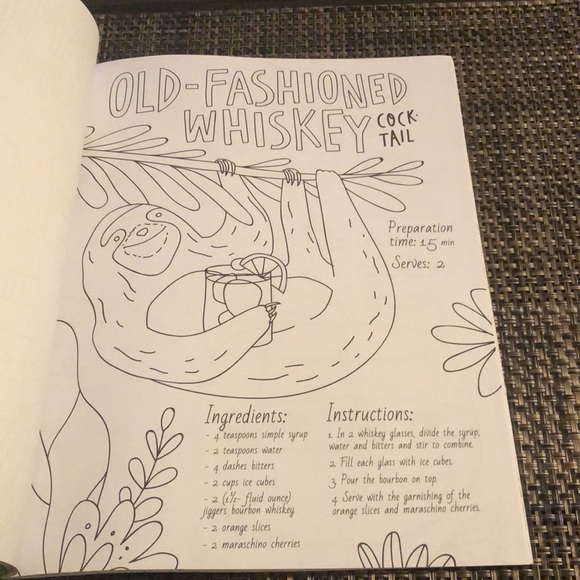 OLD-FASHIONED
WHISKEY
COCK-
TAIL
Preparation
time: 15 min
Serves: 2
Ingredients:
- 4 teaspoons simple syrup
- 2 teaspoons water
- 4 dashes bitters
- 2 cups ice cubes
- 2 (1½- fluid ounce)
jiggers bourbon whiskey
- 2 orange slices
- 2 maraschino cherries
Instructions:
1. In 2 whiskey glasses, divide the syrup,
water and bitters and stir to combine.
2. Fill each glass with ice cubes.
3. Pour the bourbon on top.
4. Serve with the garnishing of the
orange slices and maraschino cherries.